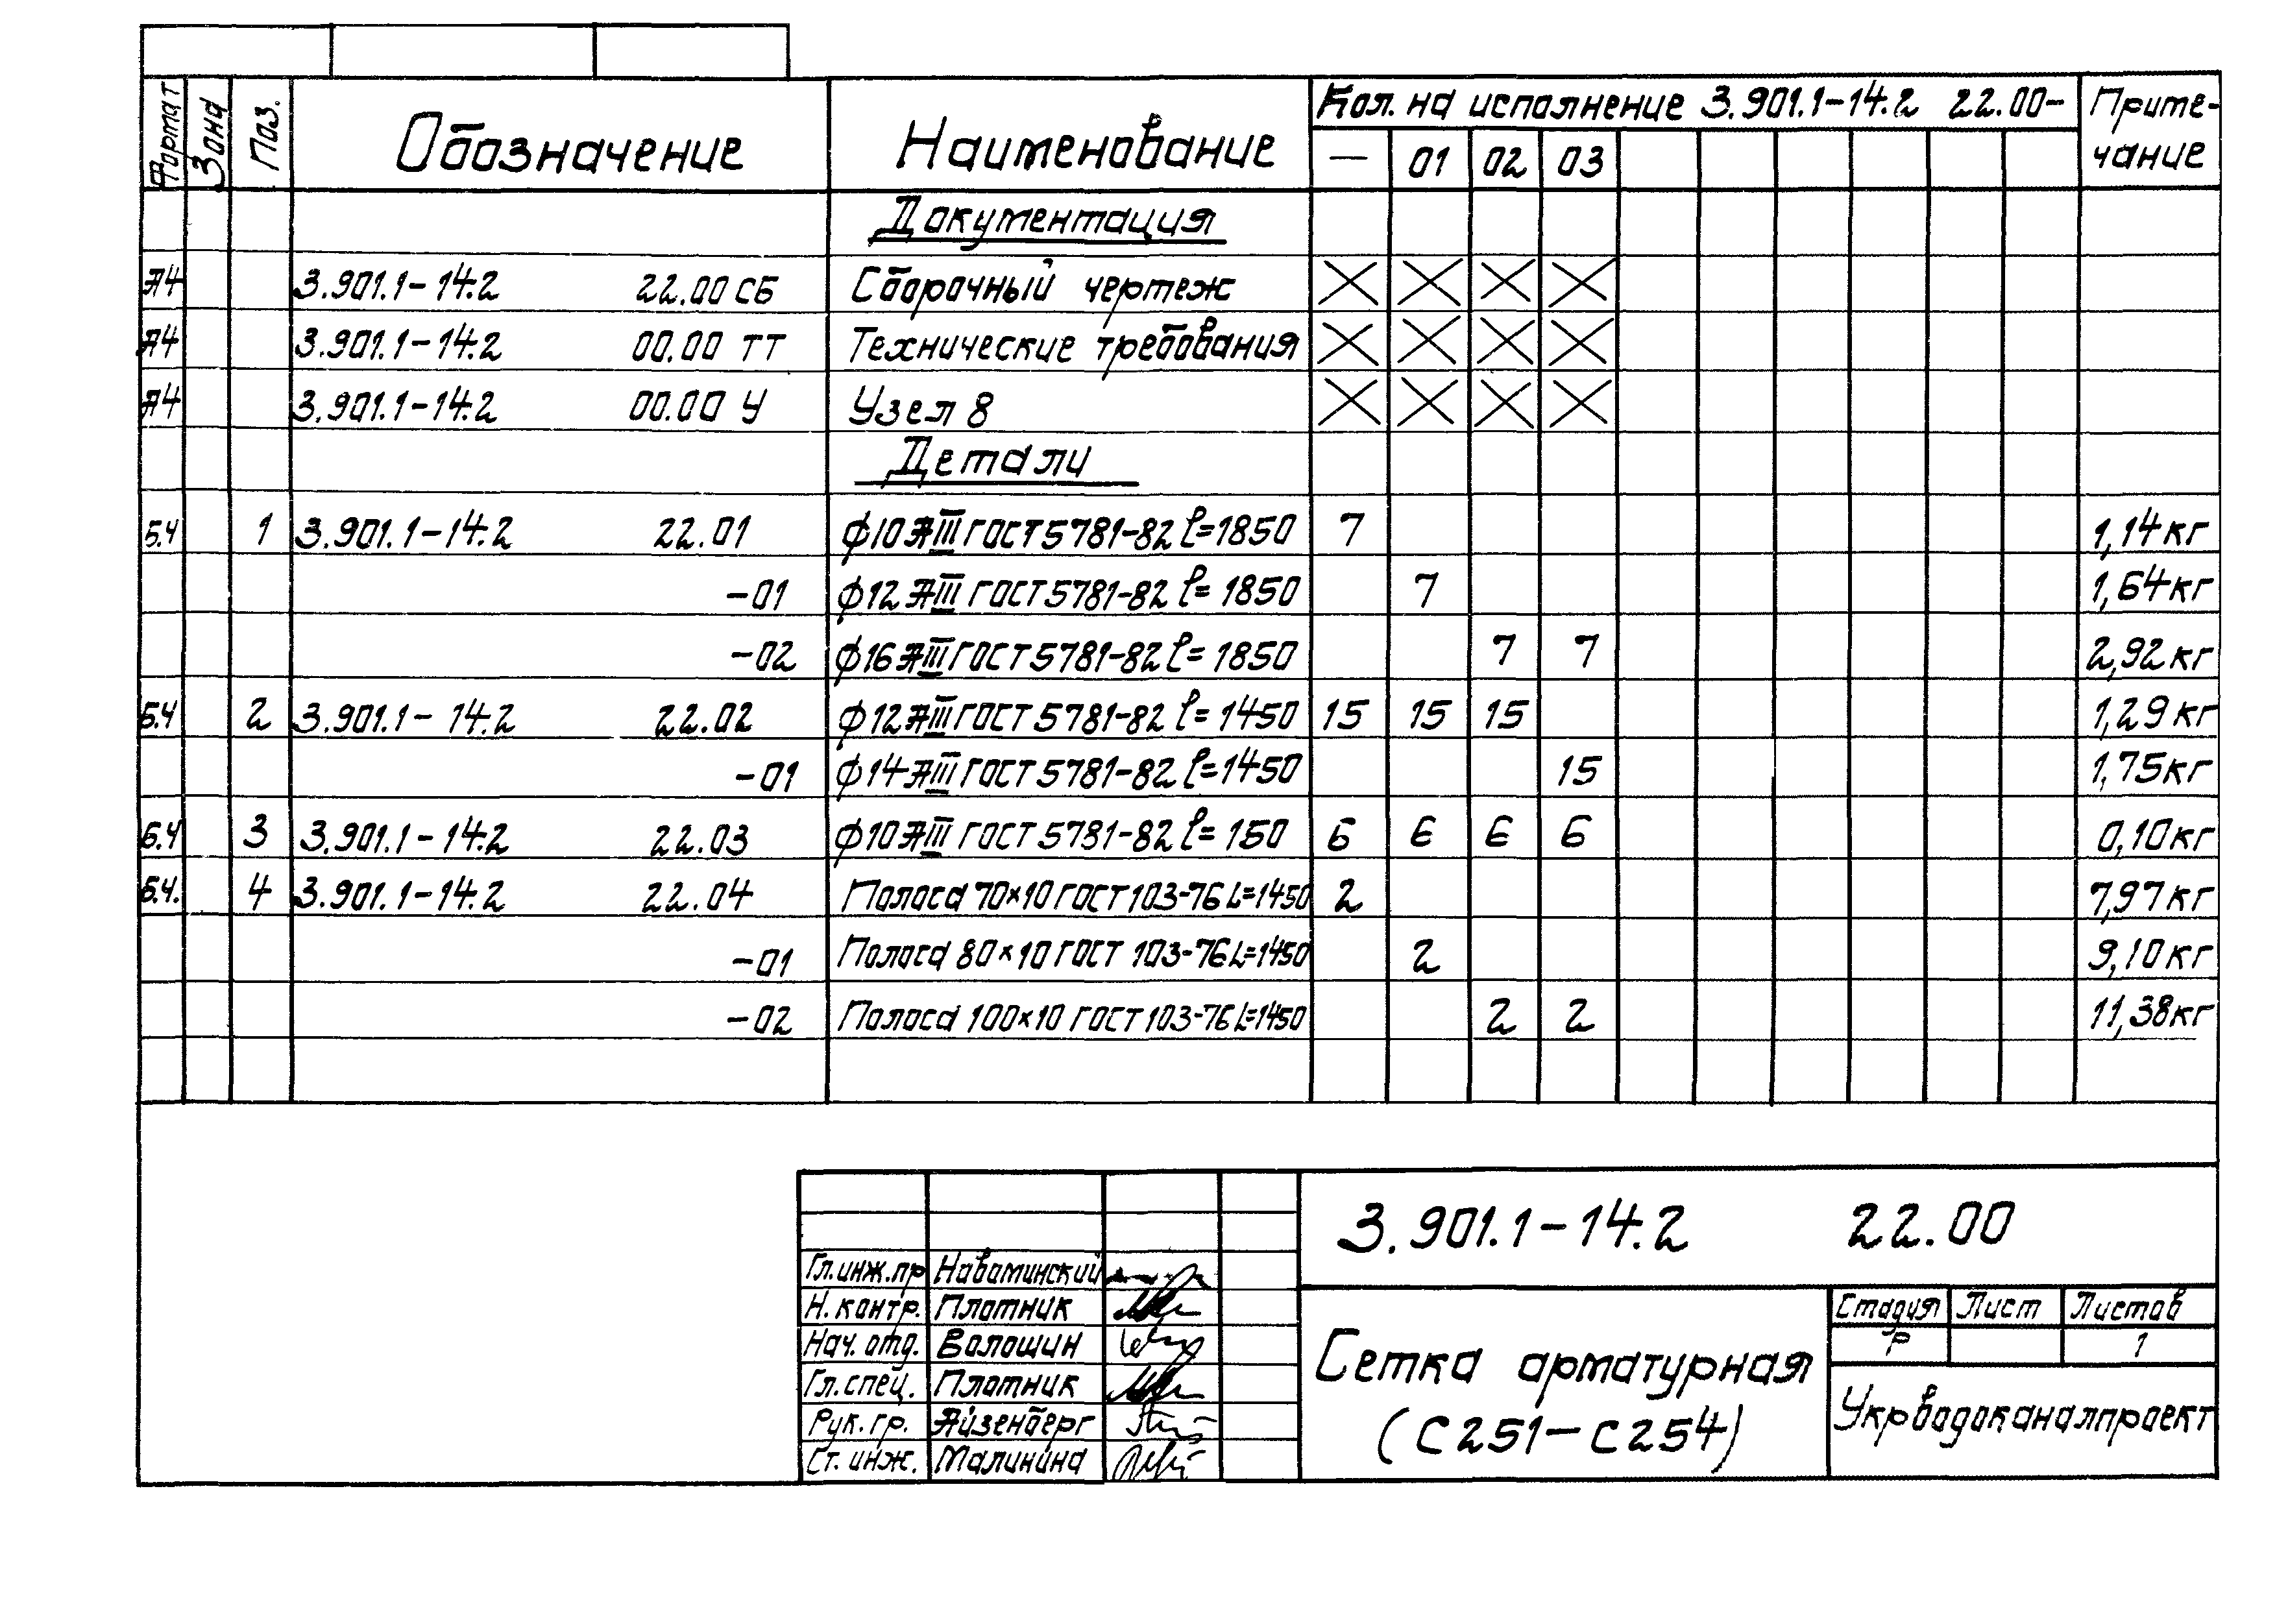 Формат Зона Поз. Обозначение Наименование Кол. на исполнение 3.901.1-14.2 22.00- Приме-
— 01 02 03 чание
Документация
А4 3.901.1-14.2 22.00 СБ Сборочный чертеж
А4 3.901.1-14.2 00.00 ТТ Технические требования
А4 3.901.1-14.2 00.00 У Узел 8
Детали
Б.Ч 1 3.901.1-14.2 22.01 ϕ10 АIII ГОСТ 5781-82 ℓ=1850 7 1,14 кг
-01 ϕ12 АIII ГОСТ 5781-82 ℓ=1850 7 1,64 кг
-02 ϕ16 АIII ГОСТ 5781-82 ℓ=1850 7 7 2,92 кг
Б.Ч 2 3.901.1-14.2 22.02 ϕ12 АIII ГОСТ 5781-82 ℓ=1450 15 15 15 1,29 кг
-01 ϕ14 АIII ГОСТ 5781-82 ℓ=1450 15 1,75 кг
Б.Ч 3 3.901.1-14.2 22.03 ϕ10 АIII ГОСТ 5781-82 ℓ=150 6 6 6 6 0,10 кг
Б.Ч. 4 3.901.1-14.2 22.04 Полоса 70×10 ГОСТ 103-76 L=1450 2 7,97 кг
-01 Полоса 80×10 ГОСТ 103-76 L=1450 2 9,10 кг
-02 Полоса 100×10 ГОСТ 103-76 L=1450 2 2 11,38 кг
3.901.1-14.2 22.00
Гл.инж.пр Новоминский
Н. контр. Плотник
Нач. отд. Волошин
Гл. спец. Плотник
Рук. гр. Айзенберг
Ст. инж. Малинина
Сетка арматурная
(С251-С254)
Стадия Лист Листов
Р 1
Укрводоканалпроект